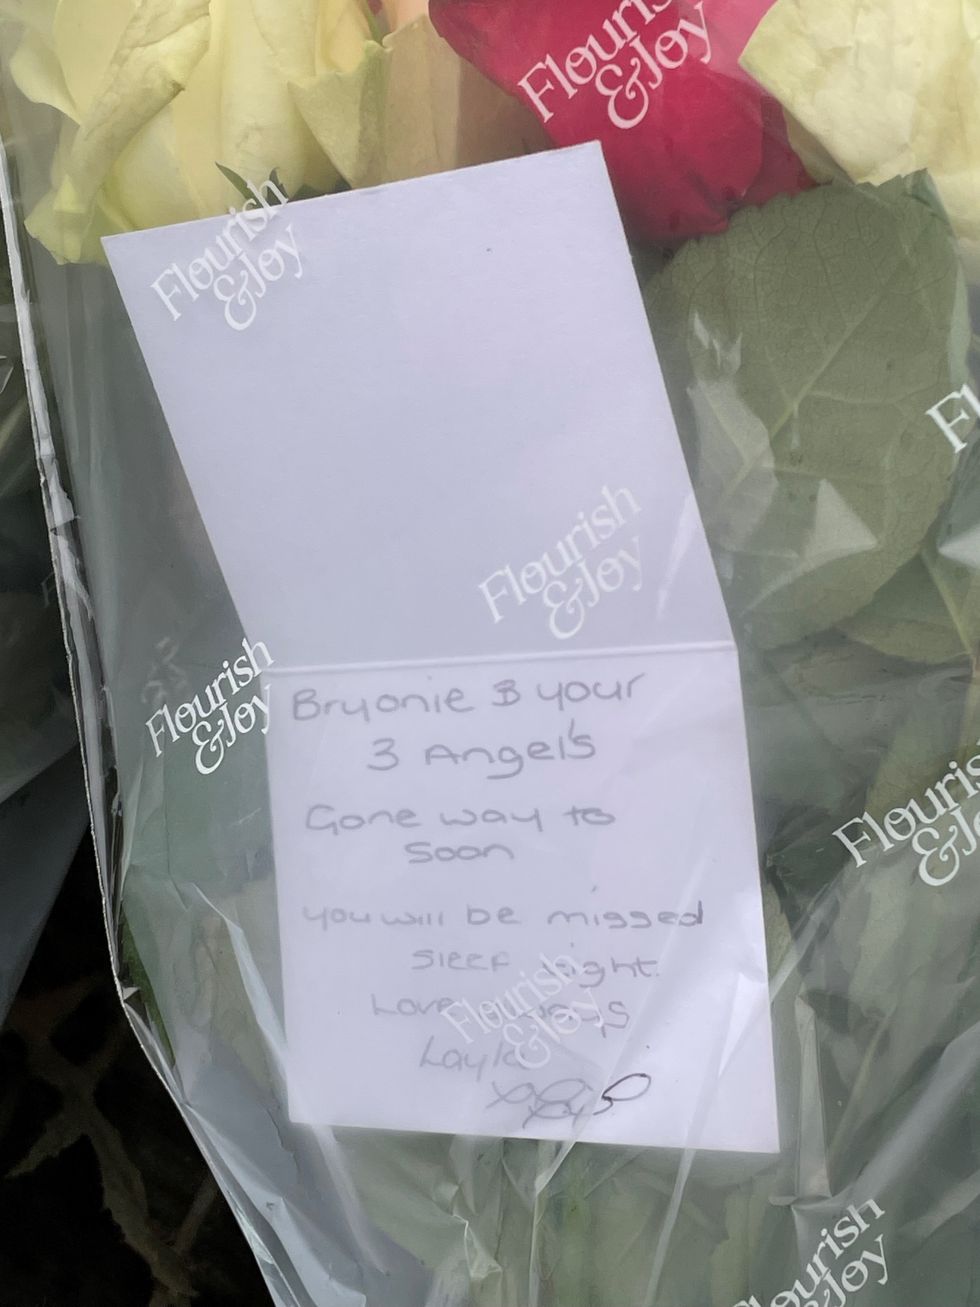 Flourish
&Joy
Flourish
&Joy
Flourish
&Joy
Flourish
&Joy
Bryonie & your
3 Angel's
Gone way to
Soon
you will be missed
Sleep tight.
Love always
Layla
xxx
Flourish
&Joy
Flourish
&Joy
Flourish
&Joy